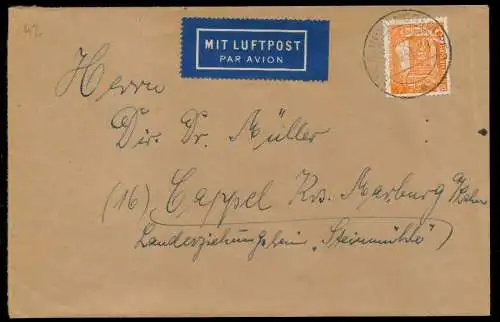 42
MIT LUFTPOST
PAR AVION
Herrn
Dir. Dr. Müller
(16) Cappel Krs. Marburg a/Lahn
Landerziehungsheim „Steinmühle"